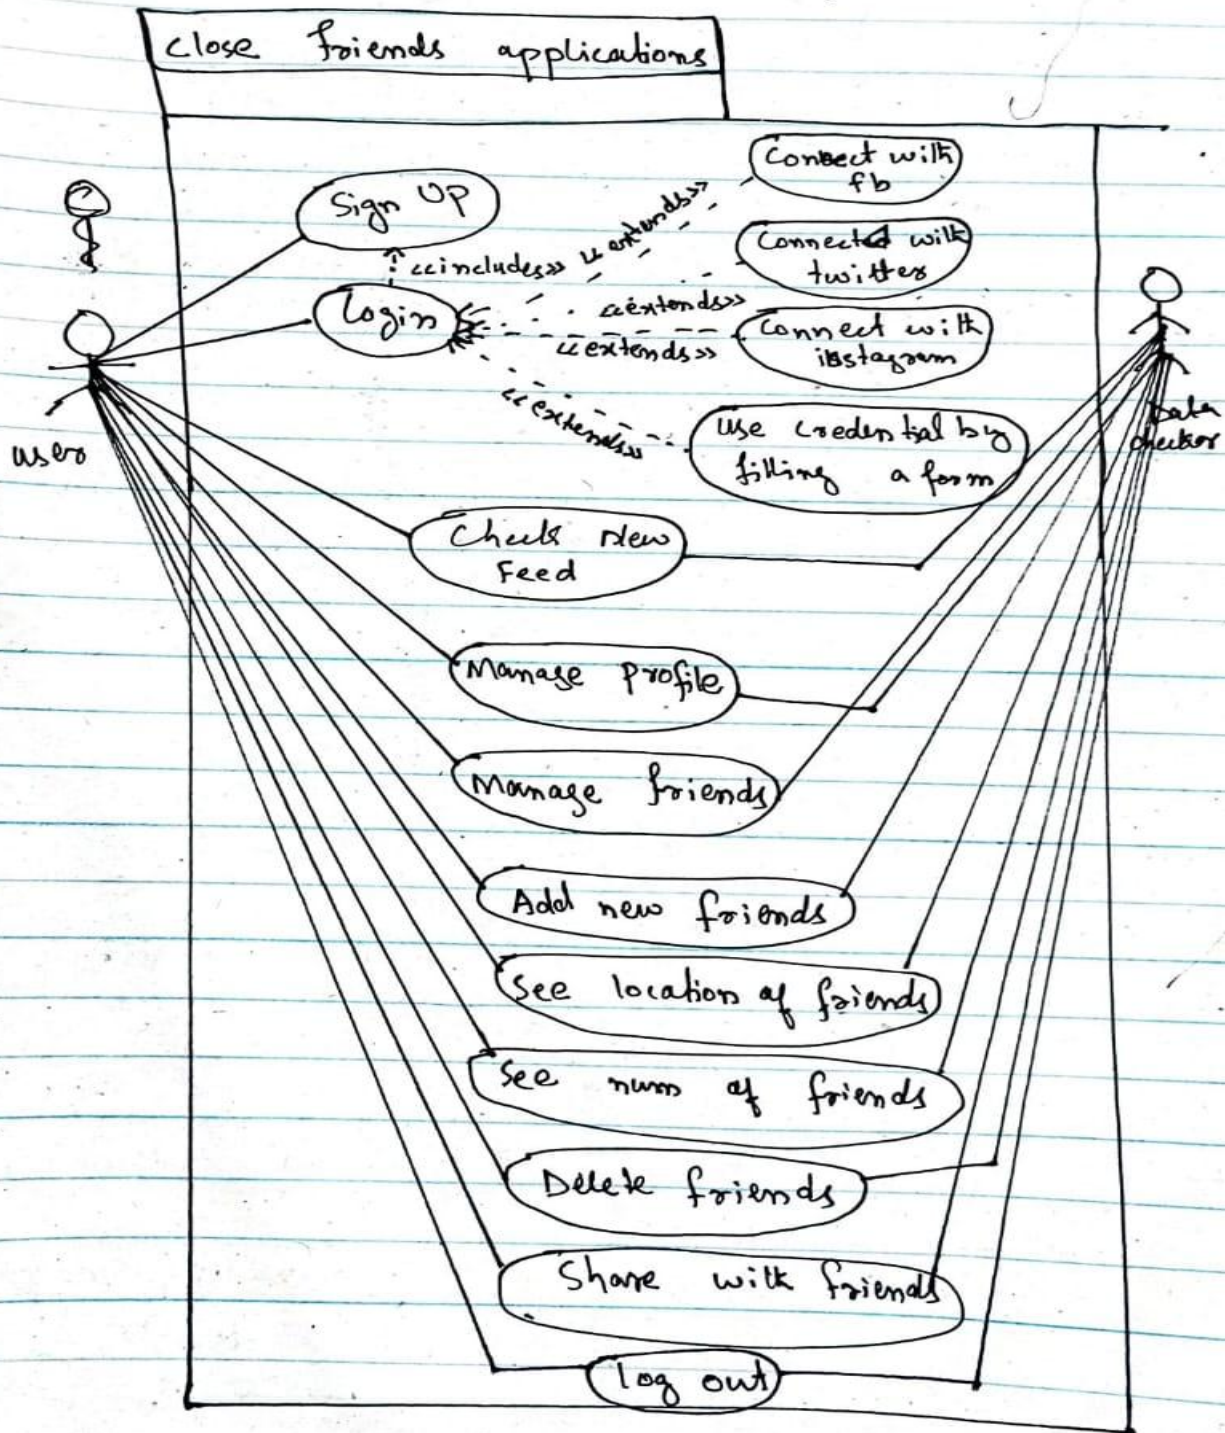 Close friends applications
Connect with
fb
Sign Up
<<extends>>
Connected with
twitter
<<includes>>
Login
<<extends>>
Connect with
instagram
<<extends>>
<<extends>>
Use credential by
filling a form
user
Data
checker
Check New
Feed
Manage profile
Manage friends
Add new friends
See location of friends
See num of friends
Delete friends
Share with friends
log out